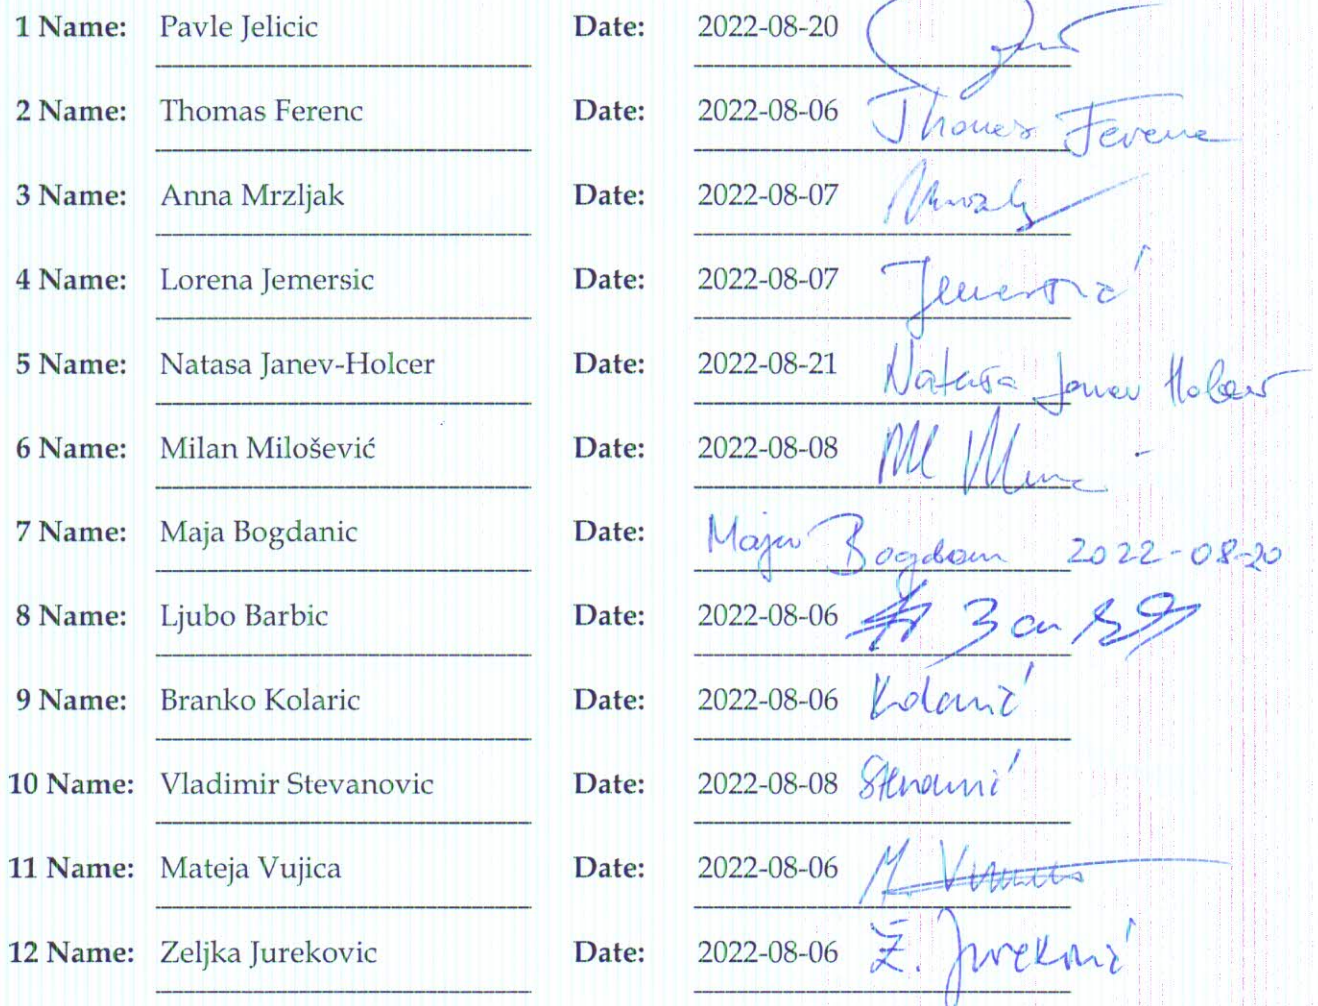 1 Name: Pavle Jelicic Date: 2022-08-20
2 Name: Thomas Ferenc Date: 2022-08-06 Thomas Ferenc
3 Name: Anna Mrzljak Date: 2022-08-07
4 Name: Lorena Jemersic Date: 2022-08-07 Jemersić
5 Name: Natasa Janev-Holcer Date: 2022-08-21 Nataša Janev Holcer
6 Name: Milan Milošević Date: 2022-08-08
7 Name: Maja Bogdanic Date: Maja 2022-08-20
8 Name: Ljubo Barbic Date: 2022-08-06
9 Name: Branko Kolaric Date: 2022-08-06 Kolarić
10 Name: Vladimir Stevanovic Date: 2022-08-08
11 Name: Mateja Vujica Date: 2022-08-06 M.
12 Name: Zeljka Jurekovic Date: 2022-08-06 Ž. Jureković